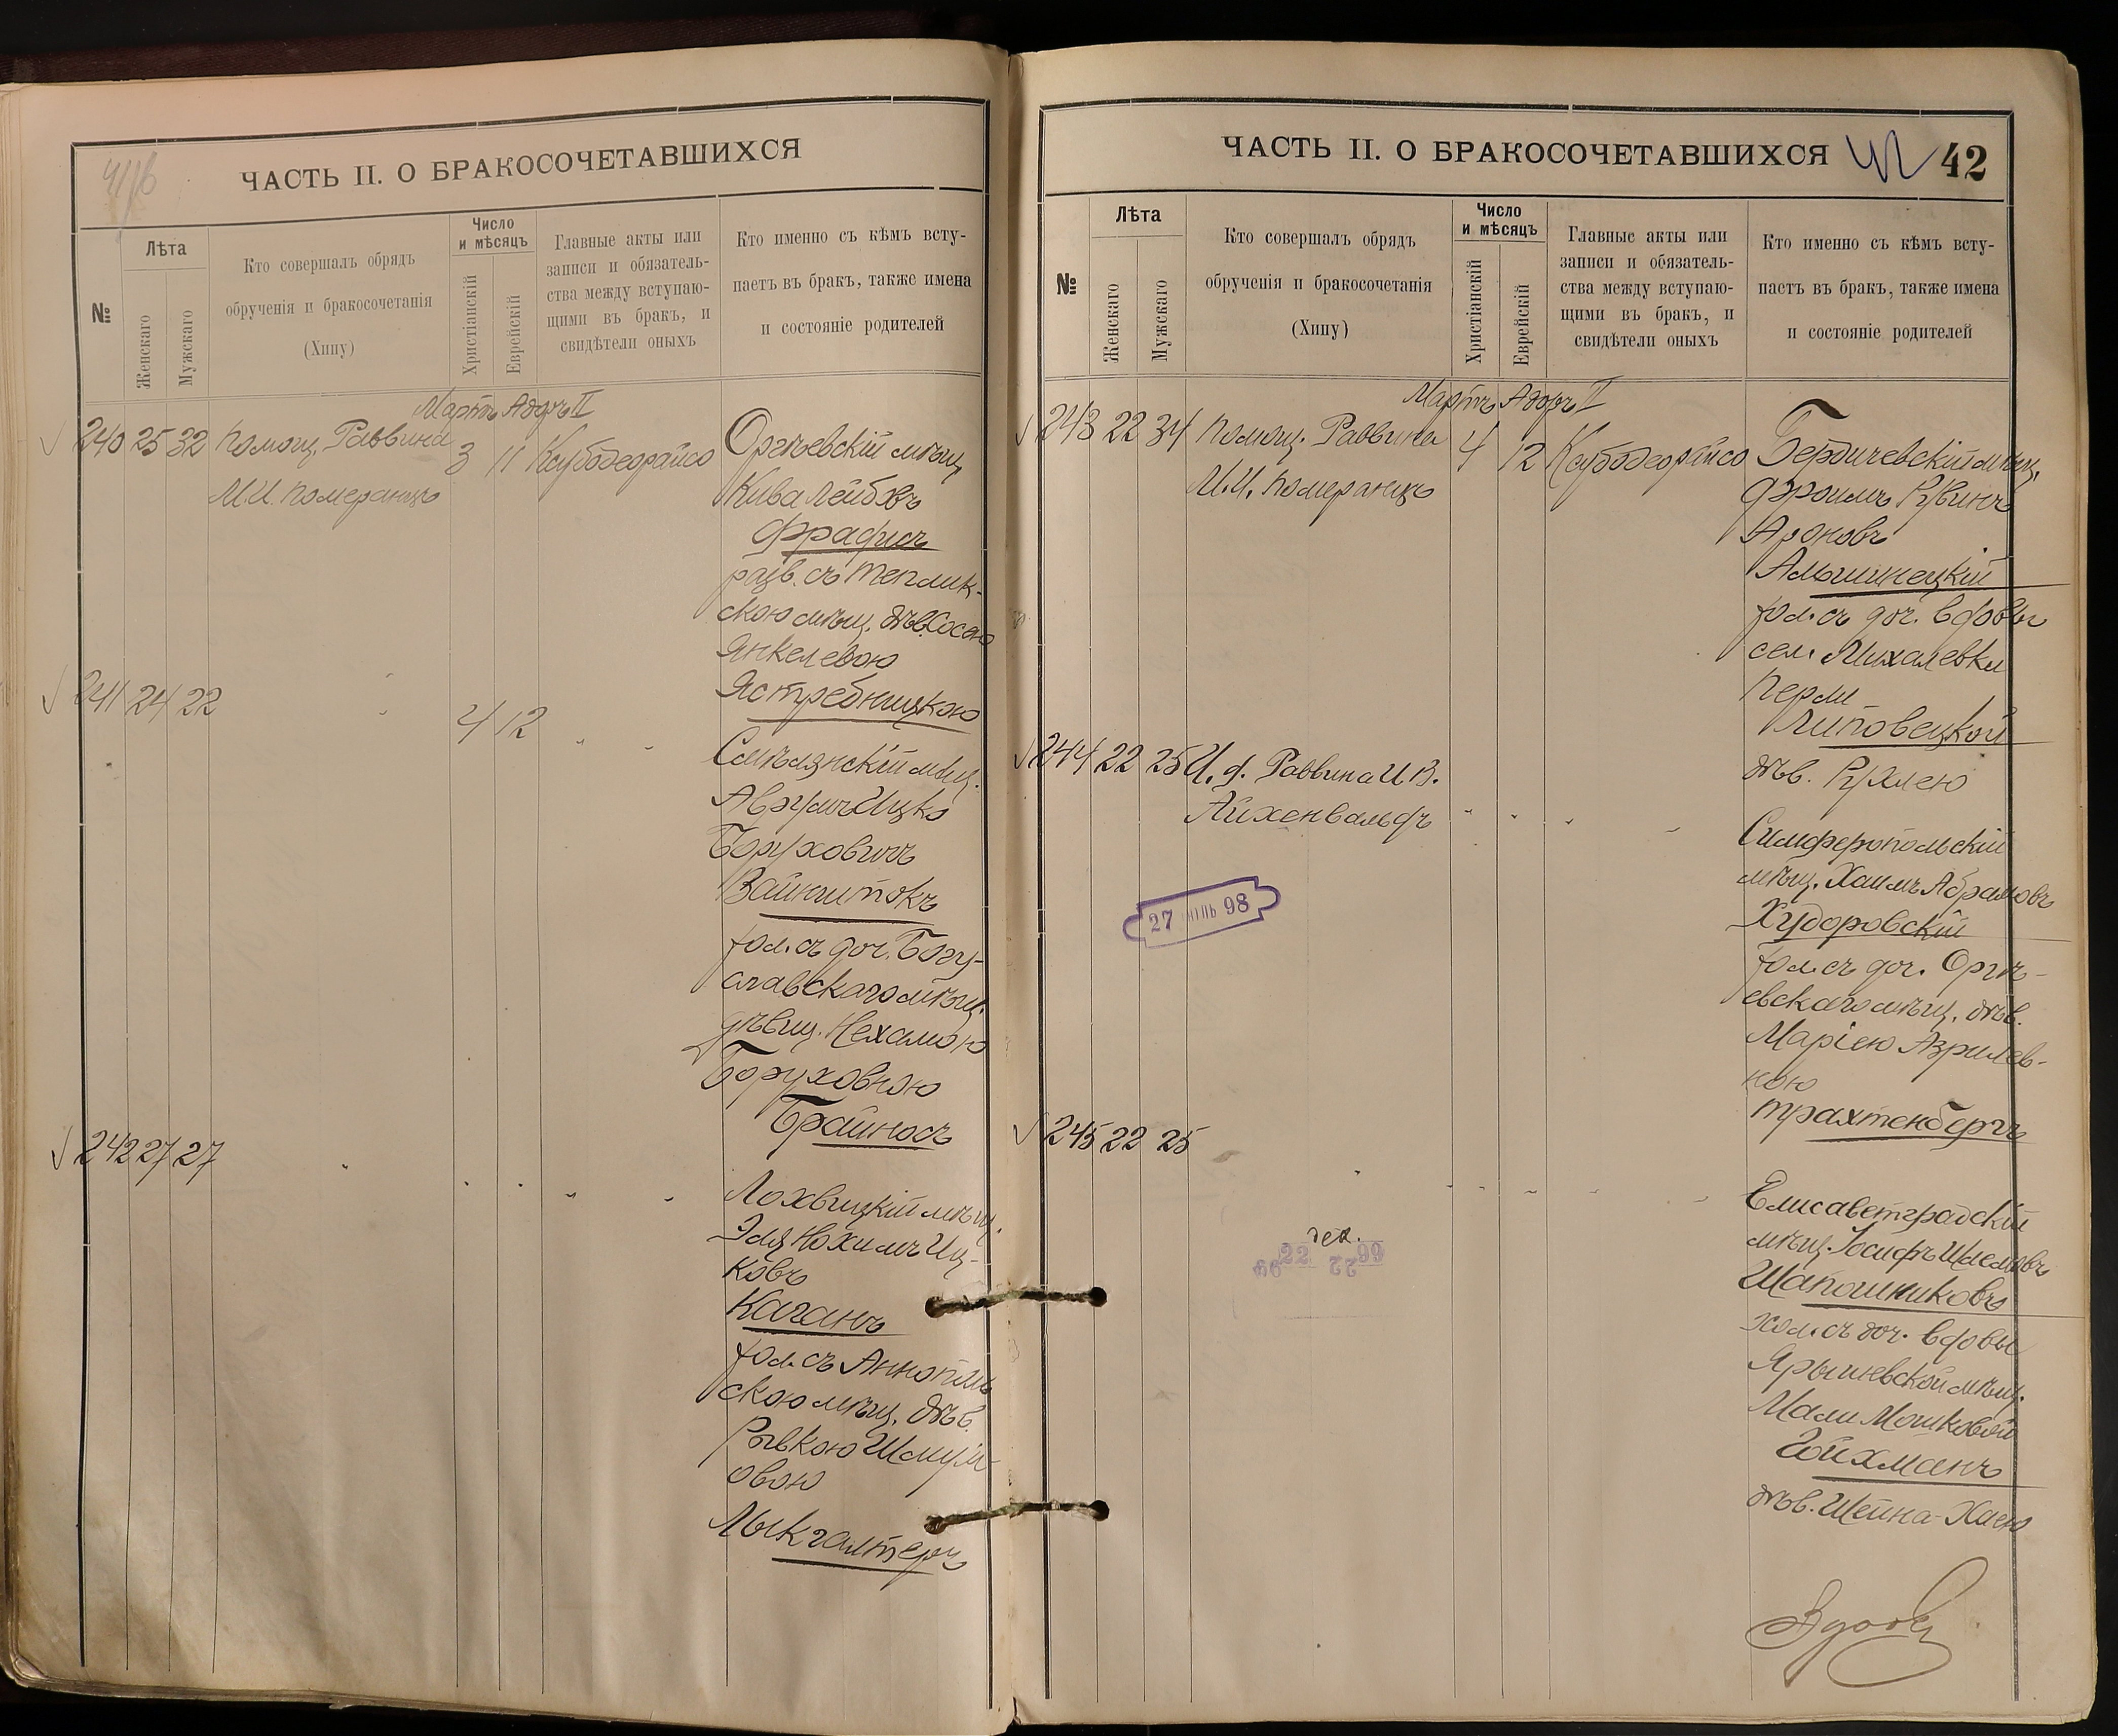 ЧАСТЬ II. О БРАКОСОЧЕТАВШИХСЯ
№
Лѣта
Женскаго
Мужскаго
Кто совершалъ обрядъ
обрученія и бракосочетанія
(Хипу)
Число
и мѣсяцъ
Христіанскій
Еврейскій
Главные акты или
записи и обязатель-
ства между вступаю-
щими въ бракъ, и
свидѣтели оныхъ
Кто именно съ кѣмъ всту-
паетъ въ бракъ, также имена
и состояніе родителей
Мартъ Адоръ II
240 25 32 Помощ. Раввина 3 11 Ксубодеорайсо
М.И. Померанцъ
Оргѣевскій мѣщ.
Кива Лейбовъ
Фрафисъ
разв. съ Теплик-
скою мѣщ. дѣв. Сосею
Янкелевою
Ястребницкою
241 24 22 4 12
Смѣлянскій мѣщ.
Аврумъ Ицко
Боруховичъ
Вайнштокъ
хол. съ доч. Богу-
славскаго мѣщ.
дѣвиц. Нехамою
Боруховною
Брайносъ
242 27 27
Лохвицкій мѣщ.
Эля Нохимъ Иц-
ковъ
Каганъ
хол. съ Аннополь
скою мѣщ. дѣв.
Рывкою Шмуль-
овою
Лыкгалтеръ
ЧАСТЬ II. О БРАКОСОЧЕТАВШИХСЯ 42 42
№
Лѣта
Женскаго
Мужскаго
Кто совершалъ обрядъ
обрученія и бракосочетанія
(Хипу)
Число
и мѣсяцъ
Христіанскій
Еврейскій
Главные акты или
записи и обязатель-
ства между вступаю-
щими въ бракъ, и
свидѣтели оныхъ
Кто именно съ кѣмъ всту-
паетъ въ бракъ, также имена
и состояніе родителей
Мартъ Адоръ II
243 22 34 Помощ. Раввина 4 12 Ксубодеорайсо
М.И. Померанцъ
Бердичевскій мѣщ.
Фроимъ Рувинъ
Ароновъ
Альшинецкій
хол. съ доч. вдовы
сел. Михалевки
Перли
Липовецкой
дѣв. Рухлею
244 22 25 И. д. Раввина И.В.
Айхенвальдъ
27 98
Симферопольскій
мѣщ. Хаимъ Абрамовъ
Худоровскій
хол. съ доч. Оргѣ-
евскаго мѣщ. дѣв.
Маріею Азрилев-
ною
Трахтенбергъ
245 22 25
дек.
22 99
Елисаветградскій
мѣщ. Іосифъ Шлемовъ
Шапошниковъ
хол. съ доч. вдовы
Ярышевской мѣщ.
Мали Мошковой
Гойхманъ
дѣв. Шейна-Хаею